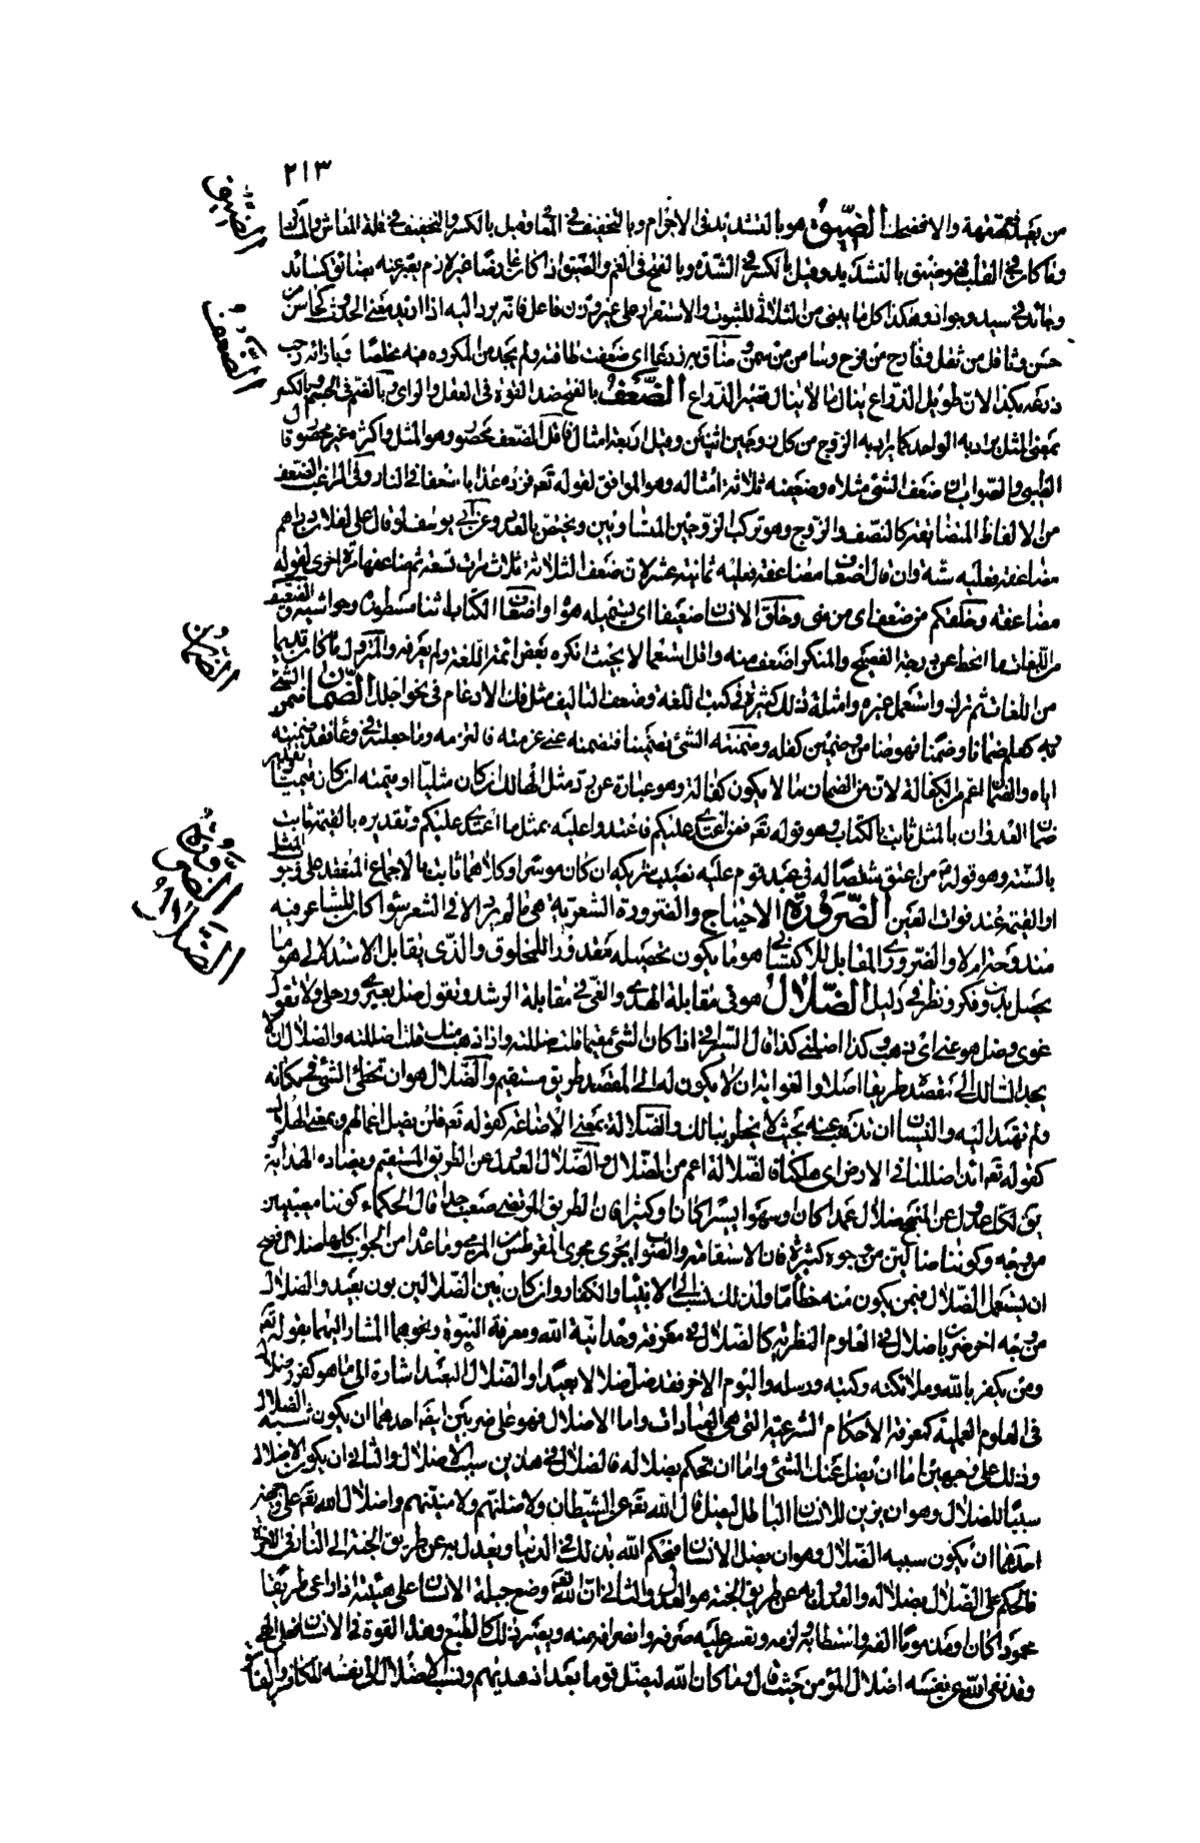 ٢١٣
من بعد قهقهة والا فضحك الضيق هو بالتشديد فى الاجرام وبالتخفيف فى المعانى وقيل بالكسر والتخفيف فى قلة المعاش والمساكن
وما كان فى القلب فهو ضيق بالتشديد وقيل بالكسر فى الشدة وبالفتح فى الغم والضيق اذا كان عارضا غير لازم يعبر عنه بضائق كسائد
وجائد فى سيد وجواد وهكذا كل ما يبنى من الثلاثى للثبوت والاستقرار على غير وزن فاعل فانه يرد اليه اذا اريد معنى الحدوث كحاسن من
حسن وثاقل من ثقل وفارح من فرح وسامن من سمن وضاق بهم ذرعا اى ضعفت طاقته ولم يجد من المكروه فيه مخلصا فبازائه رحب
ذرعه بكذا لان طويل الذراع ينال ما لا ينال قصير الذراع الضعف بالفتح ضد القوة فى العقل والراى وبالضم فى الجسم وبالكسر
بمعنى المثل يراد به الواحد كما يراد به الزوج من كل زوجين اثنين وقيل اربعة امثال فاقل الضعف محصور وهو المثل واكثره غير محصور قال
الطيبى والصواب ان ضعف الشئ مثلاه وضعفيه ثلاثة امثاله وهو الموافق لقوله تعه فزده عذابا ضعفا فى النار وفى المراغب الضعف
من الالفاظ المتضايفة كالنصف والزوج وهو تركب الزوجين المتساويين ويختص بالعدد وعن ابى يوسف لو قال على لفلان دراهم
مضاعفة فعليه ستة وان قال اضعافا مضاعفة فعليه ثمانية عشر لان ضعف الثلاثة ثلاث مرات تسعة ثم ضاعفها مرة اخرى لقوله
مضاعفة وخلقكم من ضعف اى من منى وخلق الانسان ضعيفا اى يستميله هواه واضعاف الكتاب اثناء سطوره وحواشيه والضعيف
من اللغات ما انحط عن درجة الفصيح والمنكر اضعف منه واقل استعمالا بحيث انكره بعض ائمة اللغة ولم يعرفه والمتروك ما كان قديما
من اللغات ثم ترك واستعمل غيره وامثلة ذلك كثيرة فى كتب اللغة وضعف التاليف مثل فك الادغام فى نحو اجلل الضمان ضمن الشئ
به كعلم ضمانا وضمنا فهو ضامن وضمين كفله وضمنته الشئ تضمينا فتضمنه عنى غرمته فالتزمه وما جعلته فى وعاء فقد ضمنته
اياه والضمان اعم من الكفالة لان من الضمان ما لا يكون كفالة وهو عبارة عن رد مثل الهالك ان كان مثليا او قيمته ان كان قيميا وتقدير
ضمان العدوان بالمثل ثابت بالكتاب وهو قوله تعه فمن اعتدى عليكم فاعتدوا عليه بمثل ما اعتدى عليكم وتقديره بالقيمة ثابت
بالسنة وهو قوله م من اعتق شقصا له فى عبد قوم عليه نصيب شريكه ان كان موسرا وكلاهما ثابت بالاجماع المنعقد على وجوب المثل
او القيمة عند فوات العين الضرورة الاحتياج والضرورة الشعرية هى ما لم يرد الا فى الشعر سواء كان للشاعر فيه
مندوحة ام لا والضرورى المقابل للاكتسابى هو ما يكون تحصيله مقدورا للمخلوق والذى يقابل الاستدلالى هو ما
يحصل بدون فكر ونظر فى دليل الضلال هو فى مقابلة الهدى والغى فى مقابلة الرشد وتقول ضل بعيرى ورحلى ولا تقول
غوى وضل هو عنى اى ذهب وكذا اضلنى كذا قال السيرافى اذا كان الشئ مقيما قلت ضللته واذا ذهب منك قلت اضللته والضلال ان لا
يجد السالك الى مقصده طريقا اصلا والغواية ان لا يكون له الى المقصد طريق مستقيم والضلال هو ان تخطئ الشئ فى مكانه
ولم تهتد اليه والنسيان ان تذهب عنه بحيث لا يخطر ببالك والضلالة بمعنى الاضاعة كقوله تعه فلن يضل اعمالهم وبمعنى الهلاك
كقوله تعه ائذا ضللنا فى الارض اى هلكنا والضلالة اعم من الضلال والضلال العدول عن الطريق المستقيم ويضاده الهداية
يق لكل عدول عن المنهج ضلال عمدا كان او سهوا يسيرا كان او كثيرا فان الطريق المرتضى صعب جدا قال الحكماء كوننا مصيبين
من وجه وكوننا ضالين من وجوه كثيرة فان الاستقامة والصواب يجرى مجرى المقرطس من المرمى وما عداه من الجوانب كلها ضلال فصح
ان يستعمل الضلال فيمن يكون منه خطأ ما ولذلك نسب الى الانبياء والكفار وان كان بين الضلالين بون بعيد والضلال
من وجه اخر ضربان ضلال فى العلوم النظرية كالضلال فى معرفة وحدانية الله ومعرفة النبوة ونحوهما المشار اليهما بقوله تعه
ومن يكفر بالله وملائكته وكتبه ورسله واليوم الاخر فقد ضل ضلالا بعيدا والضلال البعيد اشارة الى ما هو كفر وضلال
فى العلوم العملية كمعرفة الاحكام الشرعية التى هى العبادات واما الاضلال فهو على ضربين ايضا احدهما ان يكون سببه الضلال
وذلك على وجهين اما ان يضل عنك الشئ واما ان تحكم بضلاله فالضلال فى هذين سبب الاضلال والثانى ان يكون الاضلال
سببا للضلال وهو ان يزين للانسان الباطل ليضل قال الله تعه عن الشيطان ولاضلنهم ولامنينهم واضلال الله تعه على وجهين
احدهما ان يكون سببه الضلال وهو ان يضل الانسان فيحكم الله بذلك فى الدنيا ويعدل به عن طريق الجنة الى النار فى الاخرة
فالحكم على الضال بضلاله والعدول به عن طريق الجنة هو العدل والثانى ان الله تعه وضع جبلة الانسان على هيئة اذا راعى طريقا
محمودا كان او مذموما الفه واستطابه ولزمه وتعسر عليه صرفه وانصرافه عنه ويصير ذلك كالطبع وهذه القوة فى الانسان فعل الهى
وقد نفى الله عن نفسه اضلال المؤمن حيث قال وما كان الله ليضل قوما بعد اذ هديهم ونسب الاضلال الى نفسه للكافر والفاسق
الضيق
الضعف
الضمان
الضرورة
الضلال